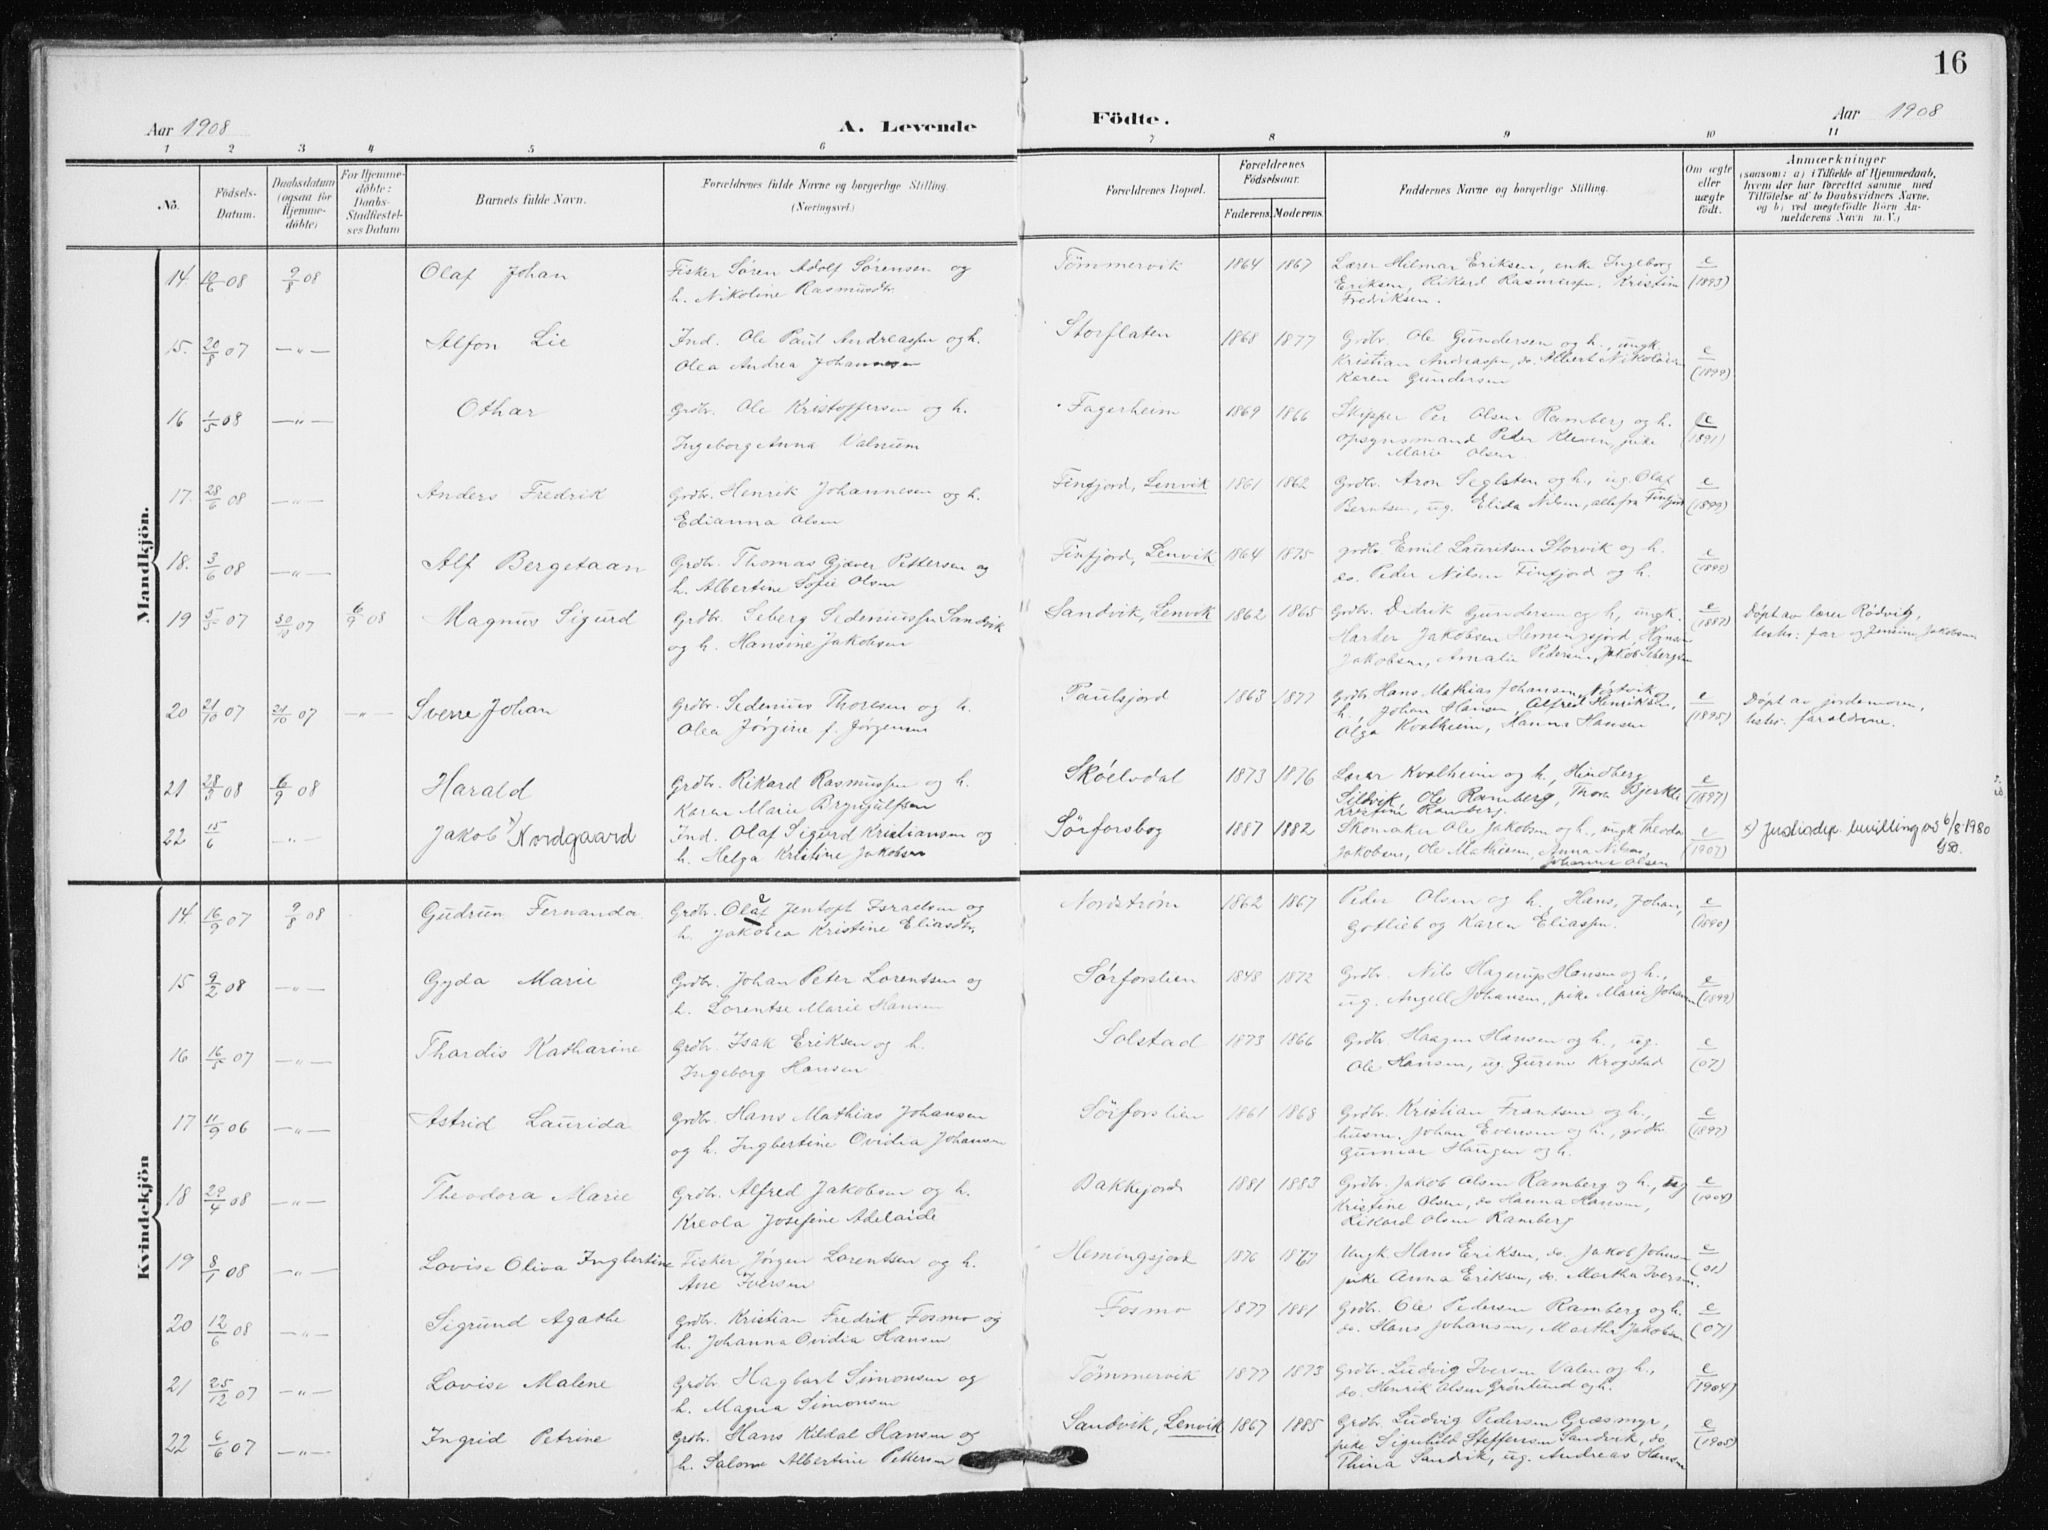 16
Aar 1908
A. Levende
Födte.
Aar 1908
1 2 3 4 5 6 7 8 9 10 11
No.
Födsels-
Datum.
Daabsdatum
(ogsaa for
Hjemme-
döbte)
For Hjemme-
döbte:
Daabs-
Stadfæstel-
ses Datum
Barnets fulde Navn.
Forældrenes fulde Navne og borgerlige Stilling.
(Næringsvei.)
Forældrenes Bopæl.
Forældrenes
Födselsaar.
Faderens. Moderens.
Faddernes Navne og borgerlige Stilling.
Om ægte
eller
uægte
födt.
Anmærkninger
(saasom: a) i Tilfælde af Hjemmedaab,
hvem der har forrettet samme med
Tilföielse af to Daabsvidners Navne.
og b) ved uægtefödte Börn An-
melderens Navn m. V.)
Mandkjön.
14. 19/6 08 9/8 08 Olaf Johan Fisker Søren Adolf Sørensen og Tömmervik 1864 1867 Lærer Hilmar Eriksen, enke Ingeborg e
h. Nikoline Rasmusdtr. Eriksen, Rikard Rasmussen, Kristine (1893)
Fredriksen.
15. 20/8 07 —"— Alfon Lie Ind. Ole Paul Andreassen og h. Storflaten 1868 1877 Grdbr. Ole Gundersen og h., ungk. e
Olea Andrea Johannesen Kristian Andreassen, do. Albert Nikolaisen (1899)
Karen Gundersen
16 1/5 08 —"— Othar Grdbr. Ole Kristoffersen og h. Fagerheim 1869 1866 Skipper Per Olsen Ramberg og h. e
Ingeborg Anna Valnum opsynsmand Peder Kleven, pike (1891)
Marie Olsen.
17. 28/6 08 —"— Anders Fredrik Grdbr. Henrik Johannesen og h. Finfjord, Lenvik 1861 1862 Grdbr. Aron Seglsten og h., ug. Olaf e
Edianna Olsen Berntsen, ug. Elida Nilsen, alle fra Finfjord (1899)
18. 3/6 08 —"— Alf Bergetaan Grdbr. Thomas Gjæver Pettersen og Finfjord, Lenvik 1864 1875 grdbr. Emil Lauritsen Storvik og h. e
h. Albertine Sofie Olsen do. Peder Nilsen Finfjord og h. (1899)
19 5/3 07 30/9 07 6/9 08 Magnus Sigurd Grdbr. Seberg Sedeniussen Sandvik Sandvik, Lenvik 1862 1865 Grdbr. Didrik Gundersen og h, ungk. e Døpt av lærer Rødvik,
og h. Hansine Jakobsen Harder Jakobsen Hemingsjord, (1887) testes: far og Jensine Jakobsen
Jakobsen, Amalie Pedersen, Jakob Sebergsen
20 21/10 07 21/10 07 —"— Sverre Johan Grdbr. Sedenius Thoresen og h. Paulsjord 1863 1877 Grdbr Hans Mathias Johansen, e Døpt av jordemoren,
Olea Jørgine f. Jørgensen h. Johan Hansen, Alfred Henriksen, (1895) testes: forældrene.
Olga Kvalheim, Hanna Hansen
21 28/3 08 6/9 08 Harald Grdbr. Rikard Rasmussen og h. Sköelvdal 1873 1876 Lærer Kvalheim og h, Hindberg e
Karen Marie Bryngulfsen Sildvik, Ole Ramberg, Thora Bjerkli (1897)
Kristine Ramberg.
22 15/6 —"— Jakob x) Nordgaard Ind. Olaf Sigurd Kristiansen og Sörforsbog 1887 1882 Skomaker Ole Jakobsen og h., ungk Theodor e x) Justisdep. bevilling av 6/8-1980
h. Helga Kristine Jakobsen Jakobsen, Ole Mathisen, Anna Nilsen, (1907)
Johanna Olsen
Kvindekjön
14. 16/9 07 9/8 08 Gudrun Fernanda Grdbr. Olaf Jentoft Israelsen og Nordström 1862 1867 Peder Olsen og h., Hans, Johan, e
h. Jakobea Kristine Eliasdtr. Gotlieb og Karen Eliassen. (1890)
15 9/2 08 —"— Gyda Marie Grdbr. Johan Peter Lorentsen og Sörforslien 1848 1872 Grdbr. Nils Hagerup Hansen og h., e
h. Lorentse Marie Hansen ug. Angell Johansen, pike Marie Johansen (1899)
16 16/5 07 —"— Thardis Katharine Grdbr. Isak Eriksen og h. Solstad 1873 1866 Grdbr. Haagen Hansen og h., ug. e
Ingeborg Hansen Ole Hansen, ug. Gurine Krogstad (07)
17 11/9 06 —"— Astrid Laurida Grdbr. Hans Mathias Johansen Sörforslien 1861 1868 Grdbr. Kristian Frantsen og h., e
og h. Ingbertine Ovidia Johansen husm. Johan Evensen og h., grdbr. (1897)
Gunnar Haugen og h.
18 29/4 08 —"— Theodora Marie Grdbr. Alfred Jakobsen og h. Bakkejord 1881 1883 Grdbr. Jakob Olsen Ramberg og h., ug e
Kreola Josefine Adelaide Kristine Olsen, do Hanna Hansen, (1904)
Rikard Olsen Ramberg
19 8/1 08 —"— Lovise Oliva Ingbertine Fisker Jørgen Lorentsen og h. Hemingsjord 1876 1867 Ungk. Hans Eriksen, do. Jakob Johnsen e
Ane Iversen pike Anna Eriksen, do. Martha Iversen. (01)
20 12/6 08 —"— Sigrund Agathe Grdbr. Kristian Fredrik Fosmo og Fosmo 1877 1881 Grdbr. Ole Pedersen Ramberg og h. e
h. Johanna Ovidia Hansen do. Hans Johansen, Martha Jakobsen (07)
21 25/12 07 —"— Lovise Malene Grdbr. Hagbart Simonsen og Tömmervik 1877 1873 Grdbr. Ludvig Iversen Valen og h., e
h. Magna Simonsen do. Henrik Olsen Grönlund og h. (1904)
22 6/6 07 —"— Ingrid Petrine Grdbr. Hans Kildal Hansen og Sandvik, Lenvik 1867 1885 Grdbr. Ludvig Pedersen Græsmyr, e
h. Salome Albertine Pettersen pike Signhild Steffensen Sandvik, do (1905)
Thina Sandvik, ug. Andreas Hansen